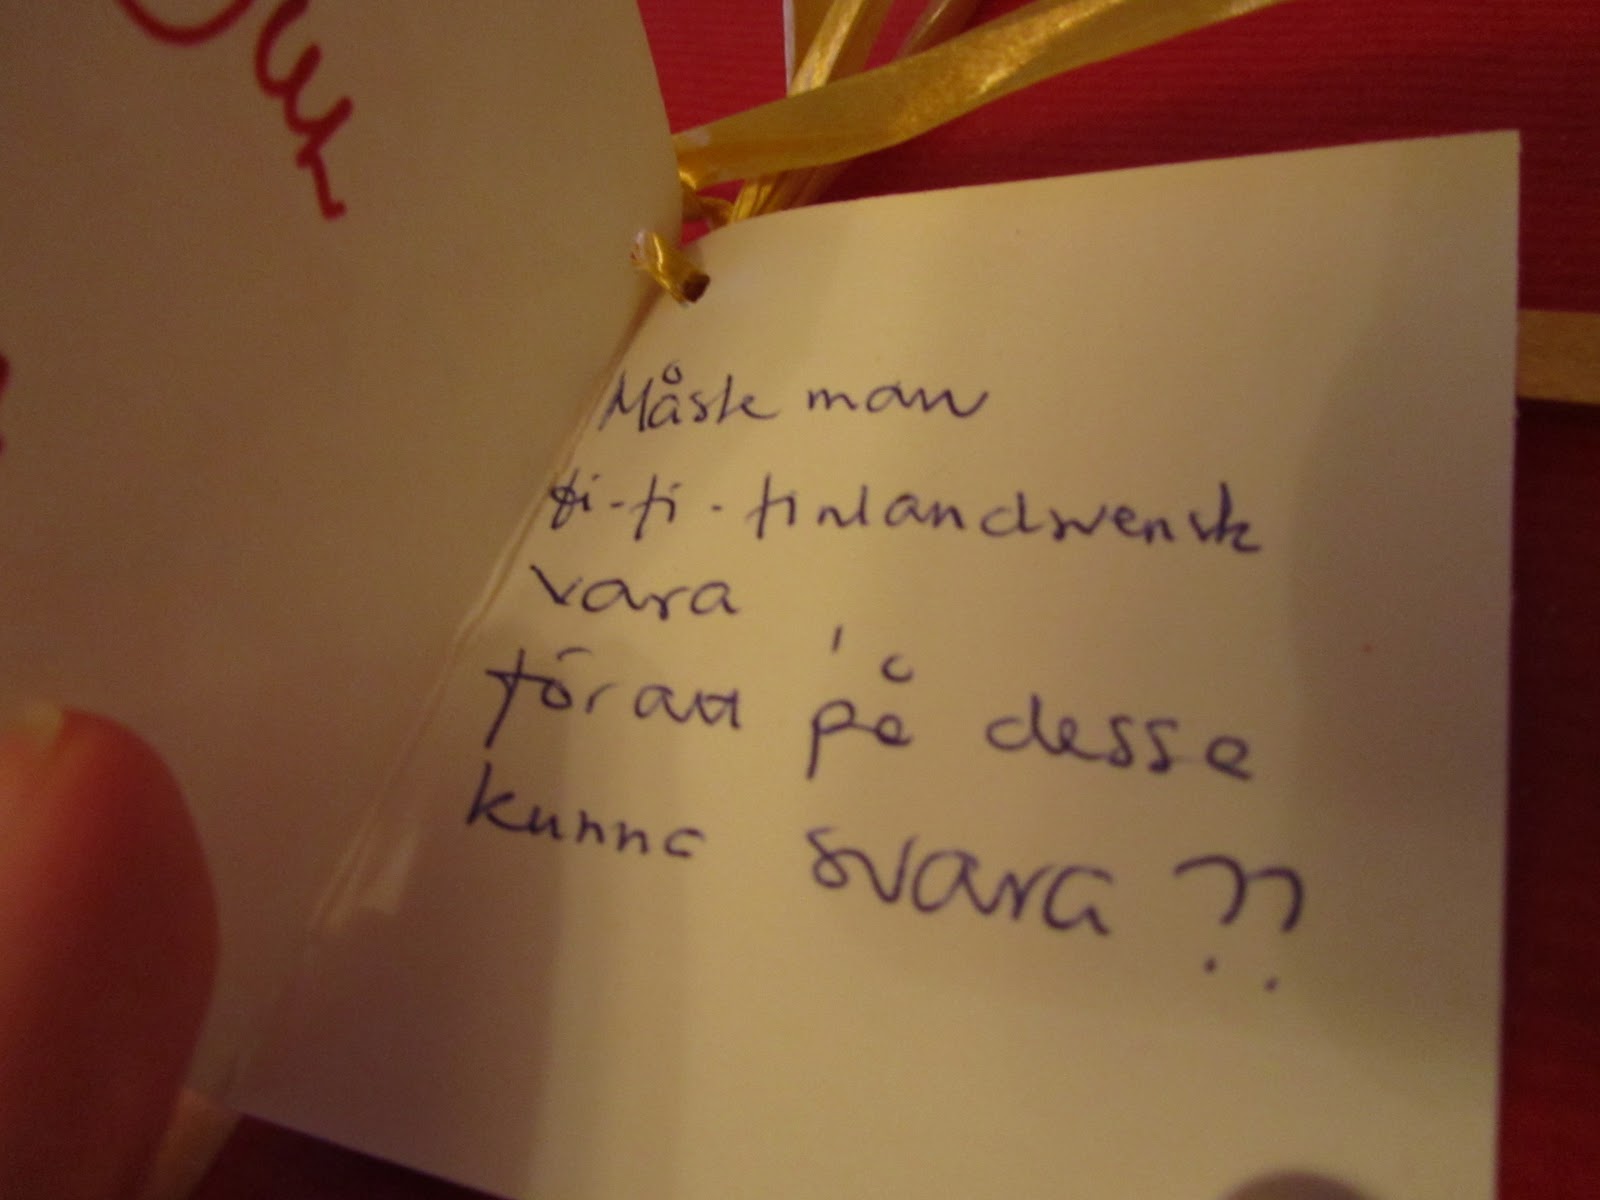 Måste man
fi-fi-finlandsvensk
vara
för att på desse
kunna svara??